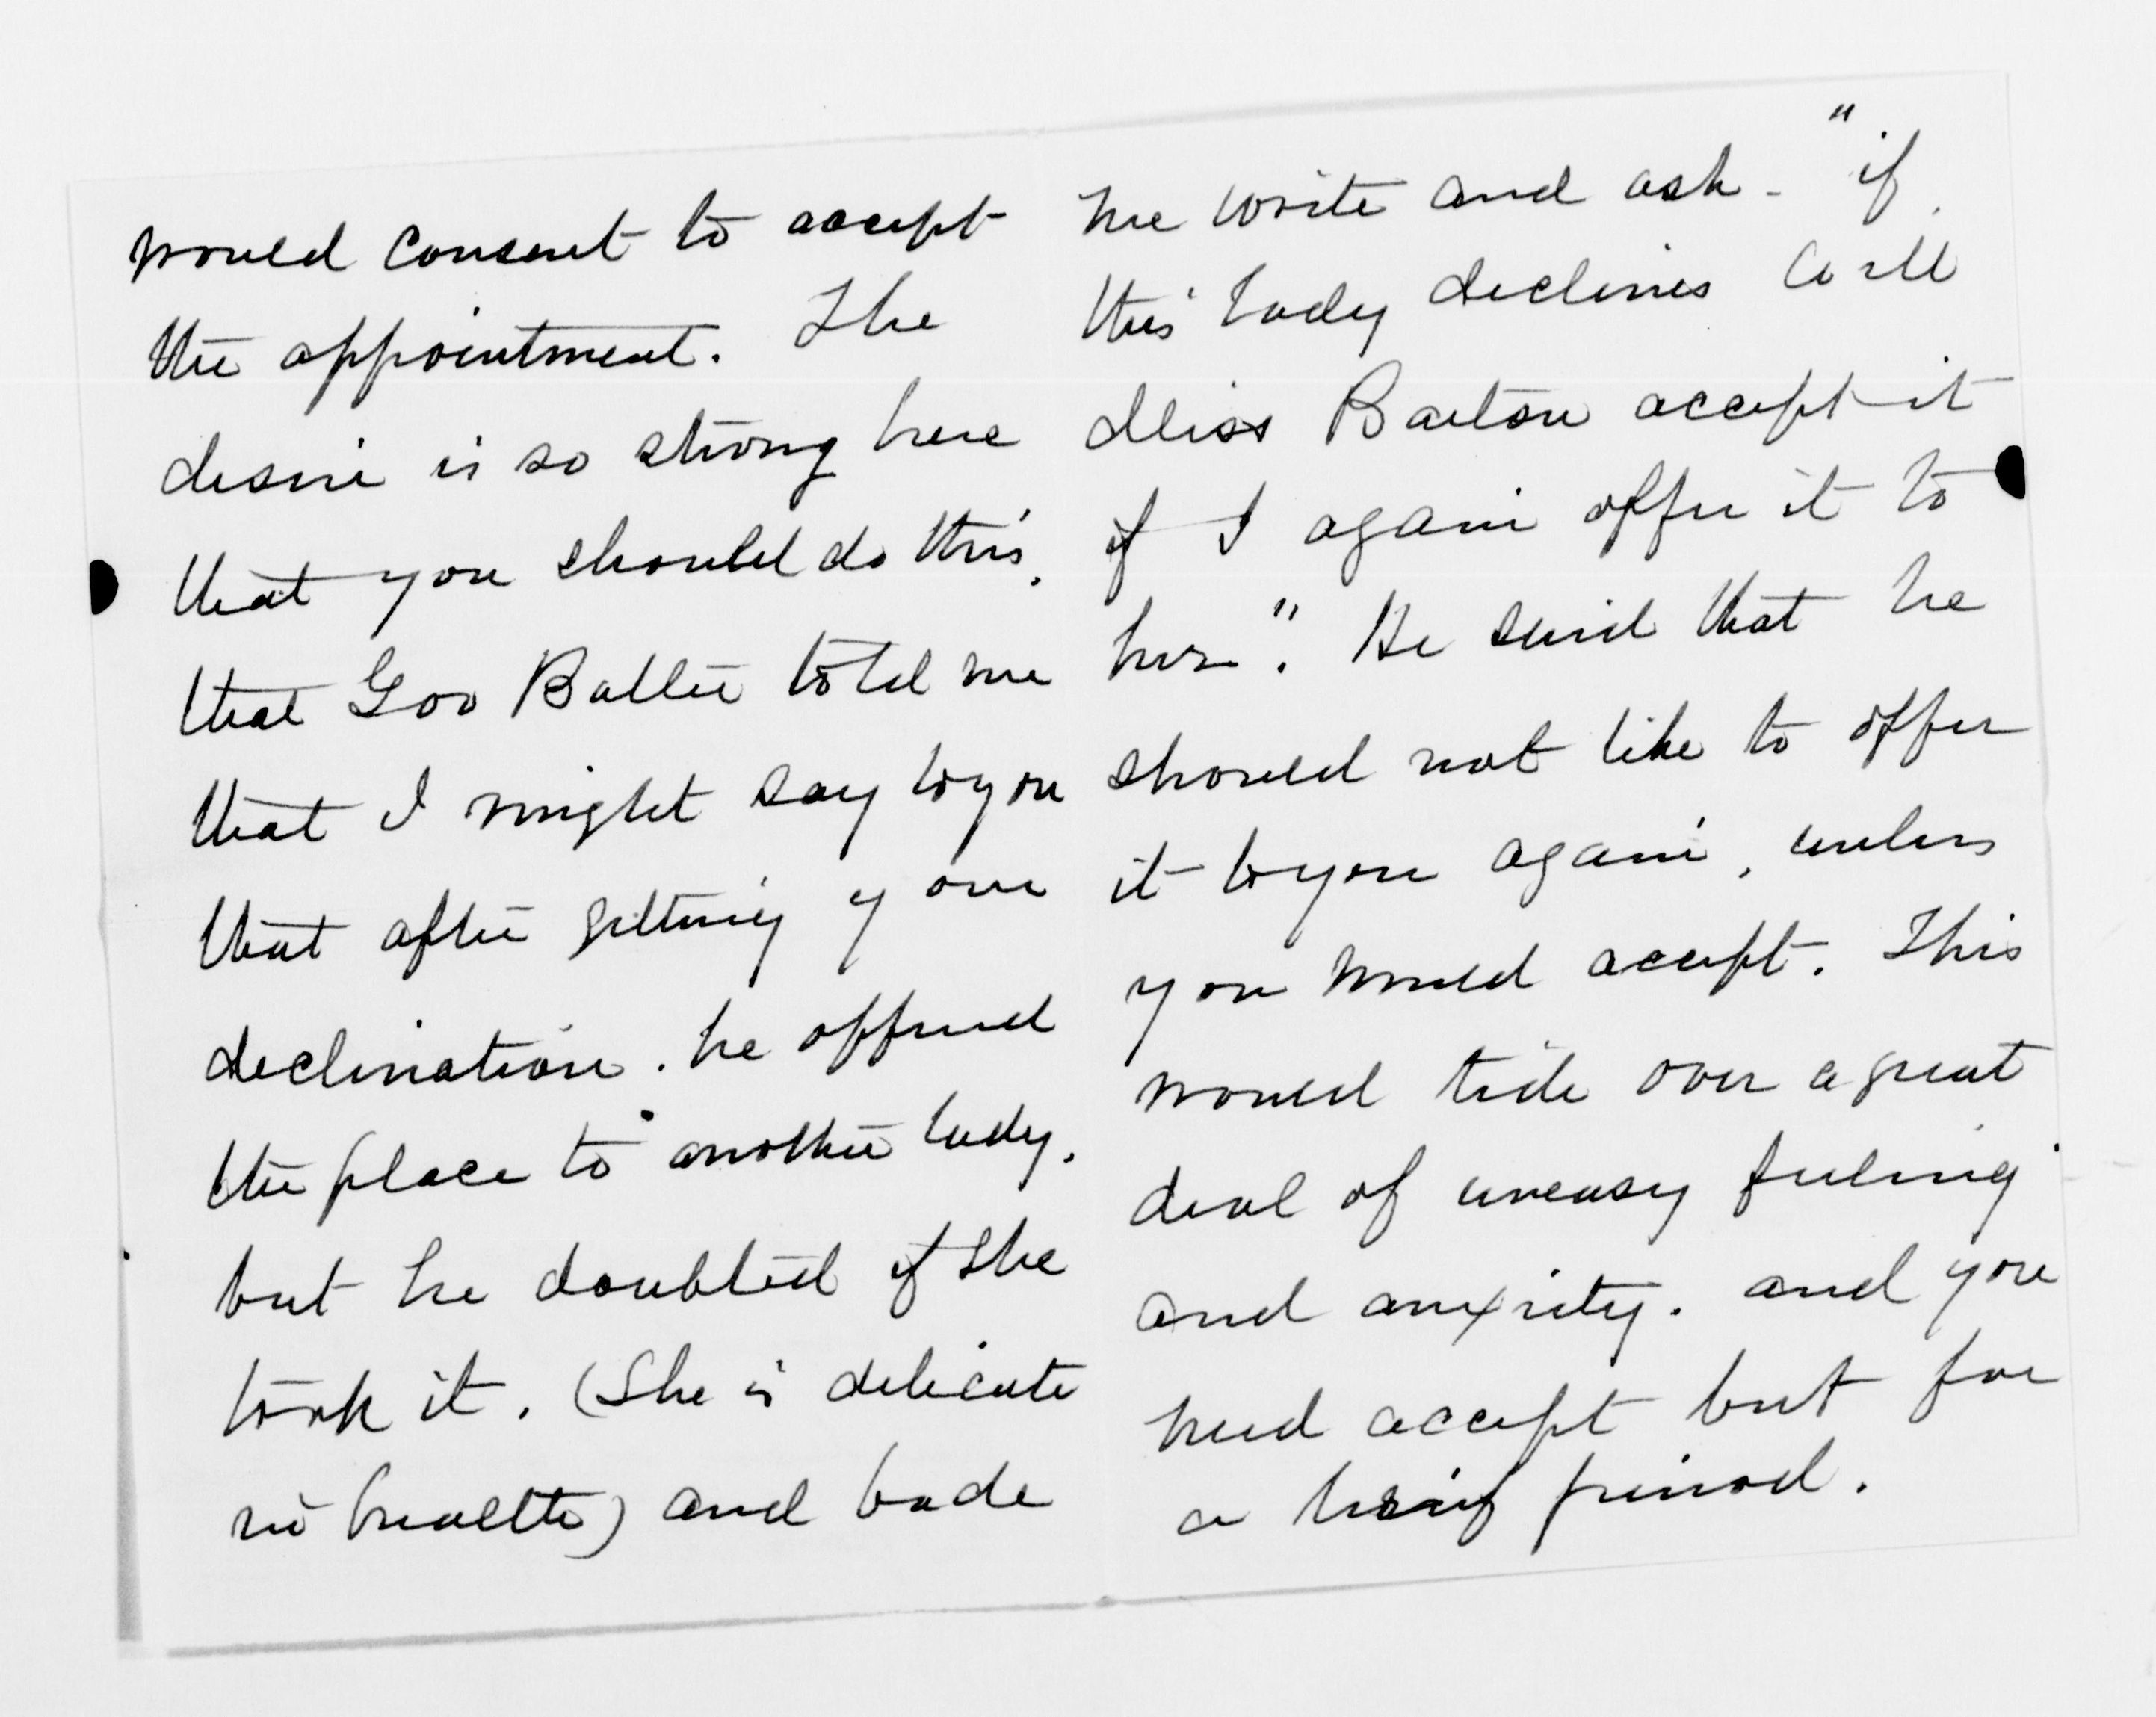 would consent to accept
the appointment. The
desire is so strong here
that you should do this,
that Gov Butler told me
that I might say to you
that after getting your
declination. he offered
the place to another lady.
but he doubted if she
took it. (She is delicate
in health) and bade
me write and ask - "if,
this lady declines will
Miss Barton accept it
if I again offer it to
her". He said that he
should not like to offer
it to you again, unless
you would accept. This
would tide over a great
deal of uneasy feeling
and anxiety. and you
need accept but for
a brief period.